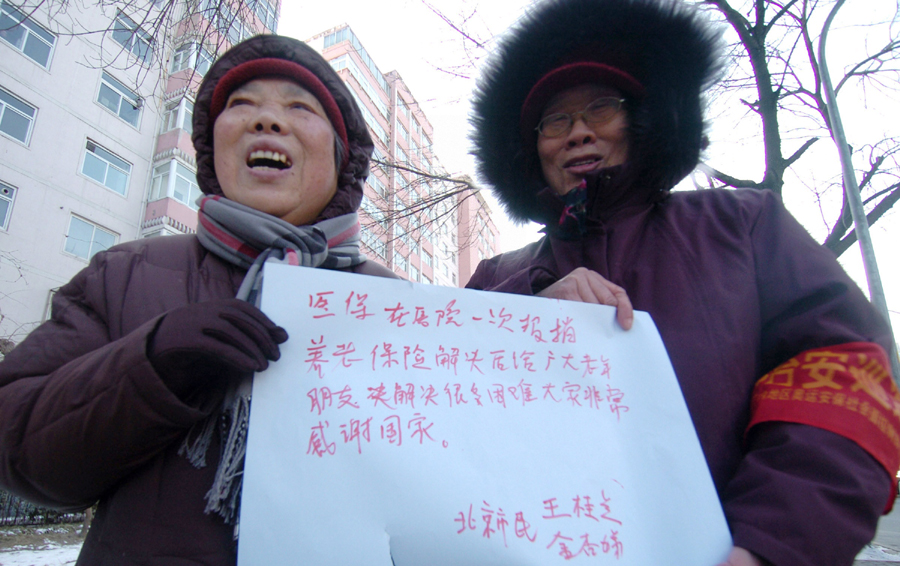 医保在医院一次报捎
养老保险解决后给广大老年
朋友决解决很多困难大家非常
感谢国家。
北京市民 王桂芝
金杏娣
治安巡